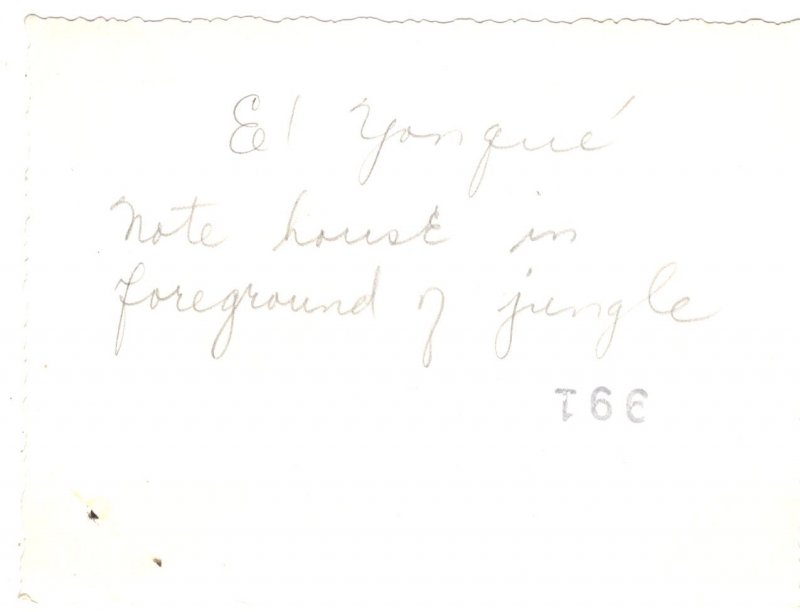 El Yonqué
Note house in
foreground of jungle
391